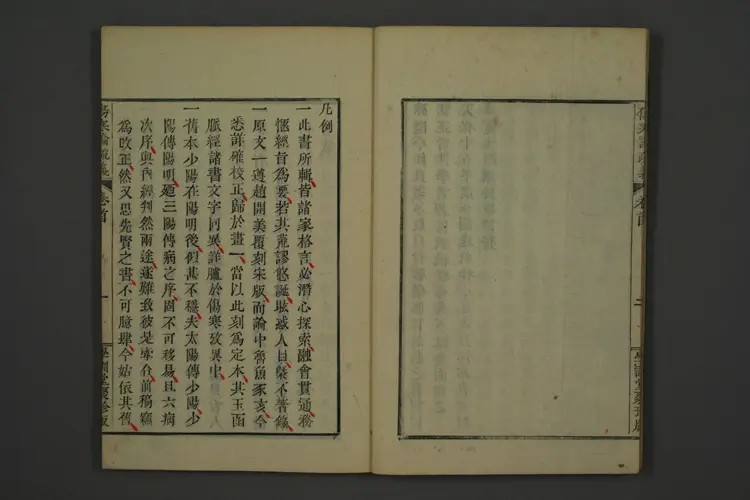 傷寒論疏義 卷首 二 學訓堂聚珍版
凡例
一此書所輯皆諸家格言必潛心探索融會貫通務
愜經旨爲要若其荒謬悠誕眩惑人目槩不著錄
一原文一遵趙開美覆刻宋版而論中魯魚豕亥今
悉詳確校正歸於畫一當以此刻爲定本其玉函
脈經諸書文字同異詳臚於傷寒攷異中
一舊本少陽在陽明後但甚不穩夫太陽傳少陽少
陽傳陽明廼三陽傳病之序固不可移易且六病
次序與內經判然兩途難致彼是牽合前稿竊
爲改正然又思先賢之書不可臆肆今姑依其舊
傷寒論疏義 卷首 一 學訓堂聚珍版